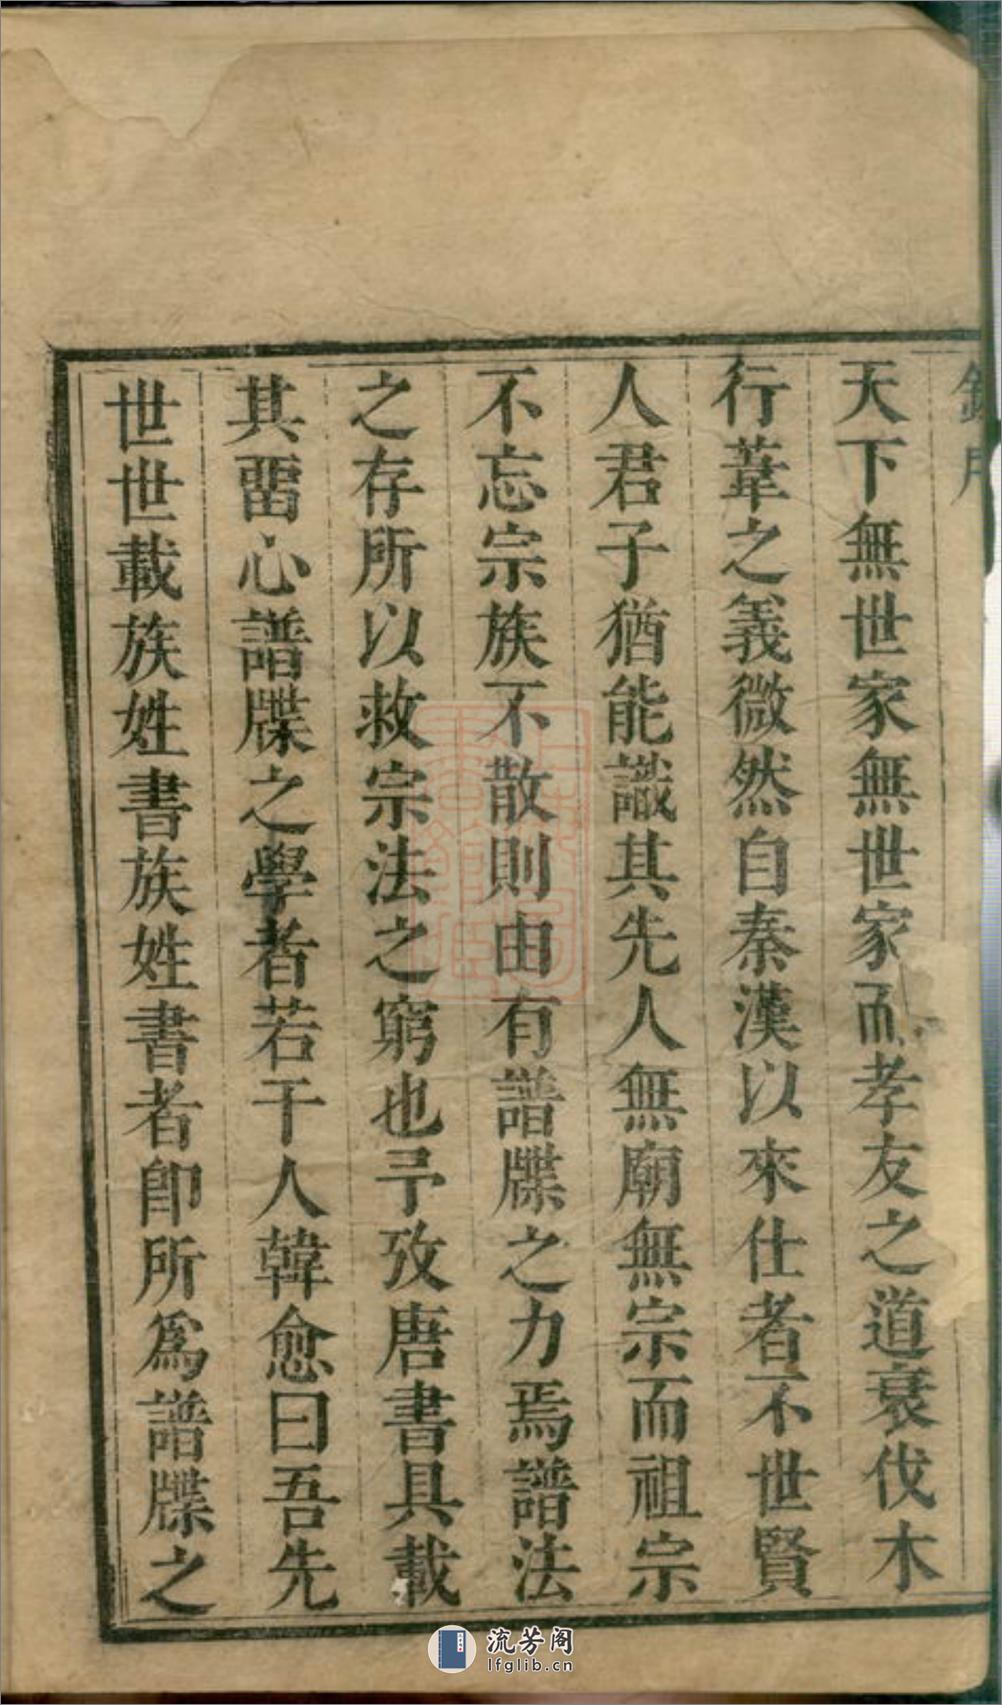 天下無世家無世家而孝友之道衰伐木
行葦之義微然自秦漢以來仕者不世賢
人君子猶能識其先人無廟無宗而祖宗
不忘宗族不散則由有譜牒之力焉譜法
之存所以救宗法之窮也予攷唐書具載
其畱心譜牒之學者若干人韓愈曰吾先
世世載族姓書族姓書者卽所爲譜牒之
流芳阁
lfglib.cn